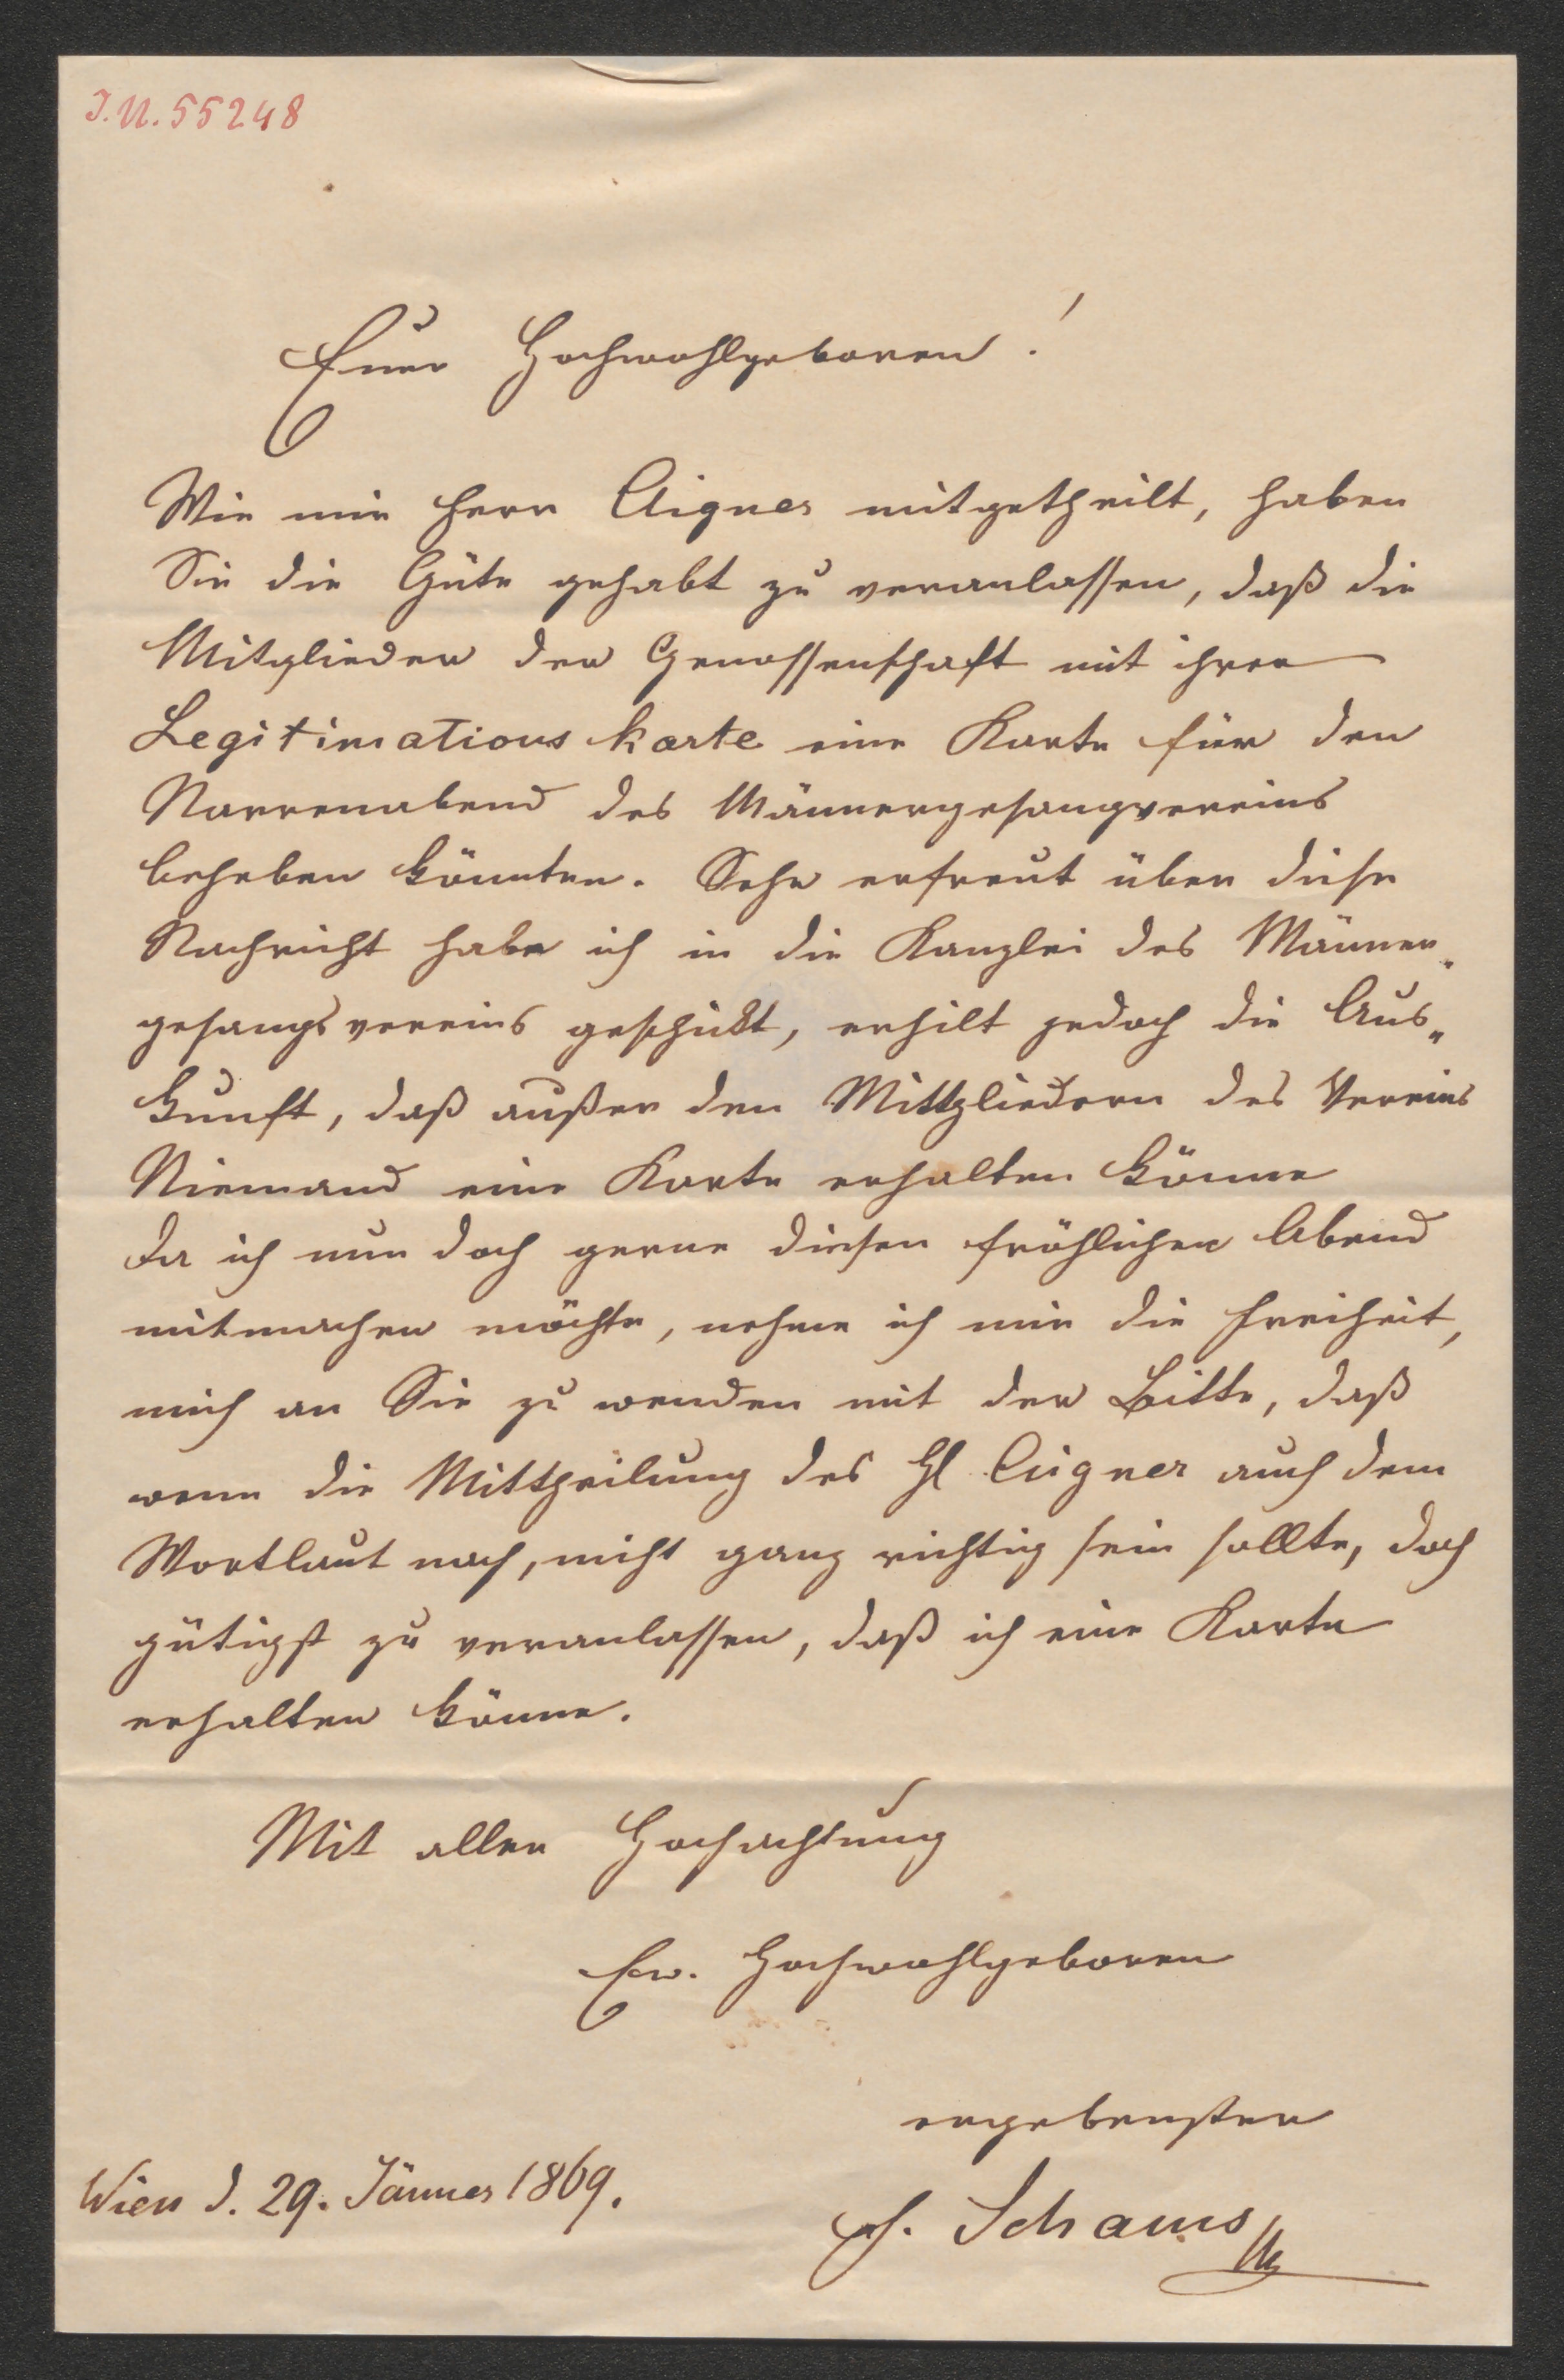 I.N. 55248
Euer Hochwohlgeboren!
Wie mir Herr Aigner mitgetheilt, haben
Sie die Güte gehabt zu veranlassen, daß die
Mitglieder der Genossenschaft mit ihrer
Legitimations karte eine Karte für den
Narrenabend des Männergesangvereins
beheben könnten. Sehr erfreut über diese
Nachricht habe ich in die Kanzlei des Männer„
gesangsvereins geschickt, erhilt jedoch die Aus„
kunft, daß außer den Mittgliedern des Vereins
Niemand eine Karte erhalten könne
Da ich nun doch gerne diesen fröhlichen Abend
mitmachen möchte, nehme ich mir die Freiheit,
mich an Sie zu wenden mit der Bitte, daß
wenn die Mittheilung des H Aigner auch dem
Wortlaut nach, nicht ganz richtig sein sollte, doch
gütigst zu veranlassen, daß ich eine Karte
erhalten könne.
Mit aller Hochachtung
Ew. Hochwohlgeboren
ergebenster
Wien d. 29. Jänner 1869.
F. Schams